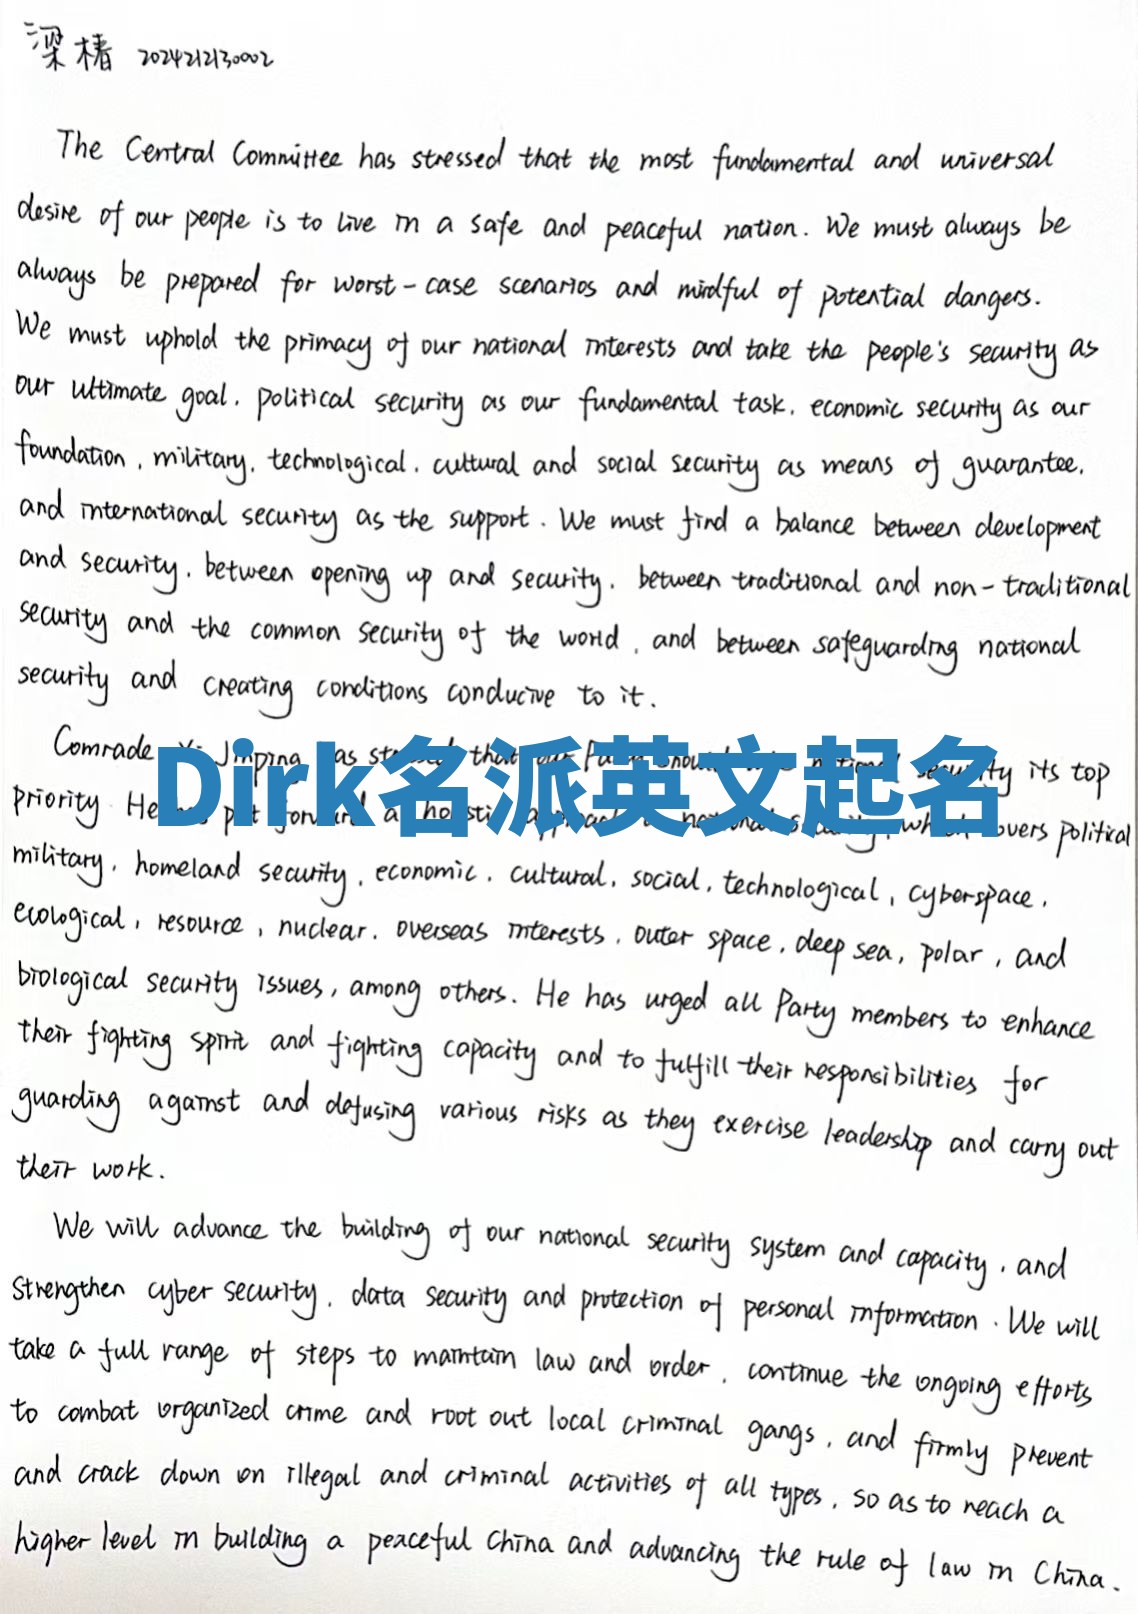 梁椿 2024212130002
The Central Committee has stressed that the most fundamental and universal
desire of our people is to live in a safe and peaceful nation. We must always be
always be prepared for worst-case scenarios and mindful of potential dangers.
We must uphold the primacy of our national interests and take the people's security as
our ultimate goal, political security as our fundamental task, economic security as our
foundation, military, technological, cultural and social security as means of guarantee,
and international security as the support. We must find a balance between development
and security, between opening up and security, between traditional and non-traditional
security and the common security of the world, and between safeguarding national
security and creating conditions conducive to it.
Comrade Xi Jinping has stressed that our Party should make national security its top
Dirk名派英文起名
priority. He has put forward a holistic approach to national security, which covers political
military, homeland security, economic, cultural, social, technological, cyberspace,
ecological, resource, nuclear, overseas interests, outer space, deep sea, polar, and
biological security issues, among others. He has urged all Party members to enhance
their fighting spirit and fighting capacity and to fulfill their responsibilities for
guarding against and defusing various risks as they exercise leadership and carry out
their work.
We will advance the building of our national security system and capacity, and
strengthen cyber security, data security and protection of personal information. We will
take a full range of steps to maintain law and order, continue the ongoing efforts
to combat organized crime and root out local criminal gangs, and firmly prevent
and crack down on illegal and criminal activities of all types, so as to reach a
higher level in building a peaceful China and advancing the rule of law in China.